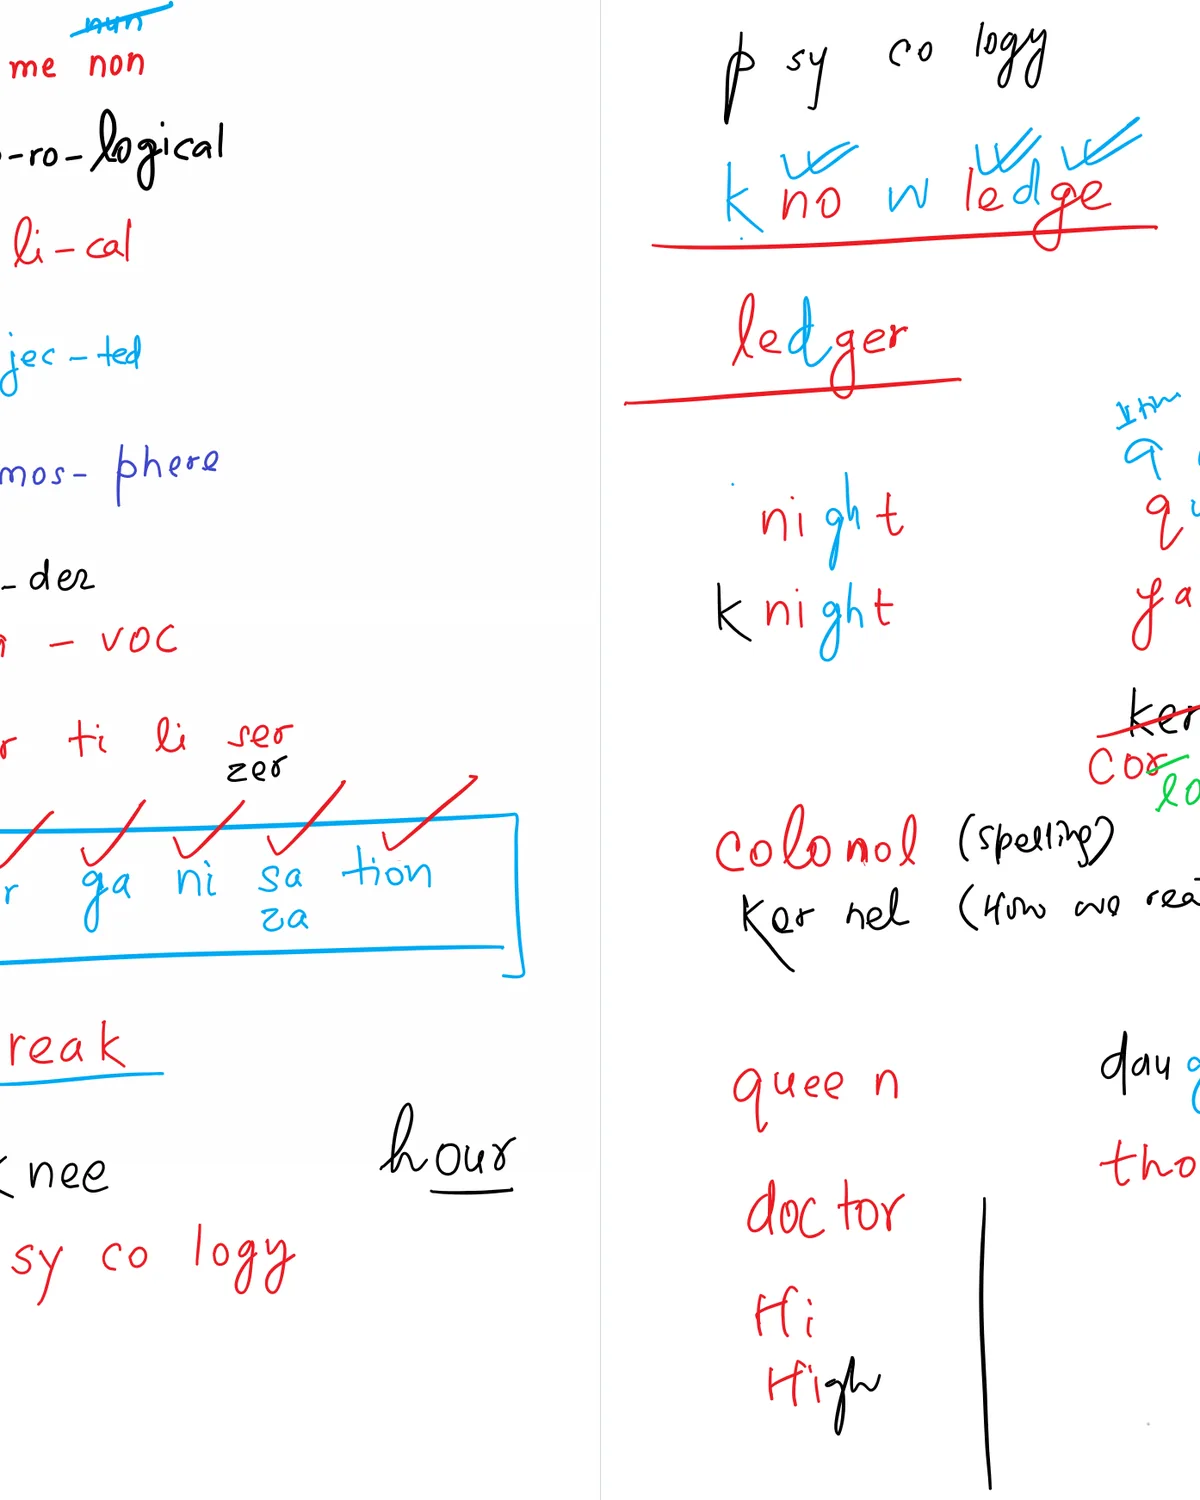 nun
me non
-ro-logical
li-cal
jec-ted
mos-phere
-der
- voc
r ti li ser
zer
r ga ni sa tion
za
reak
knee
hour
sy co logy
p sy co logy
k no w ledge
ledger
night
q
k night
ya
ker
cor
lo
colonol (spelling)
ker nel (How we rea
quee n
dau g
tho
doctor
Hi
High